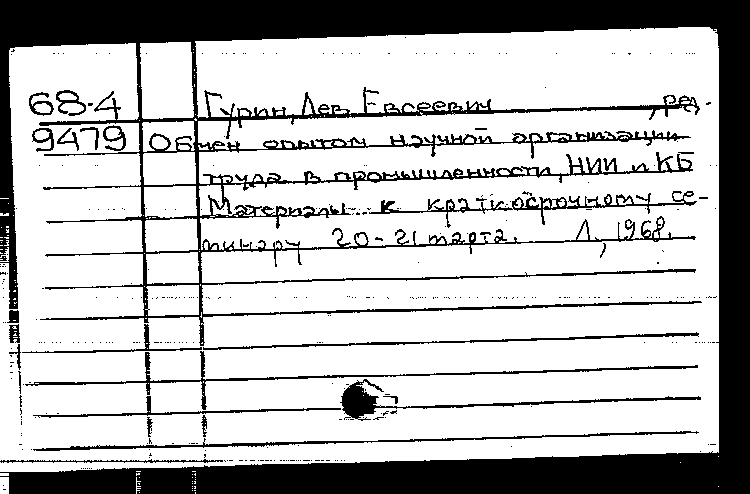 68-4 Гурин, Лев Евсеевич, ред.
9479 Обмен опытом научной организации
труда в промышленности, НИИ и КБ
Материалы к краткосрочному се-
минару 20-21 марта. Л., 1968.